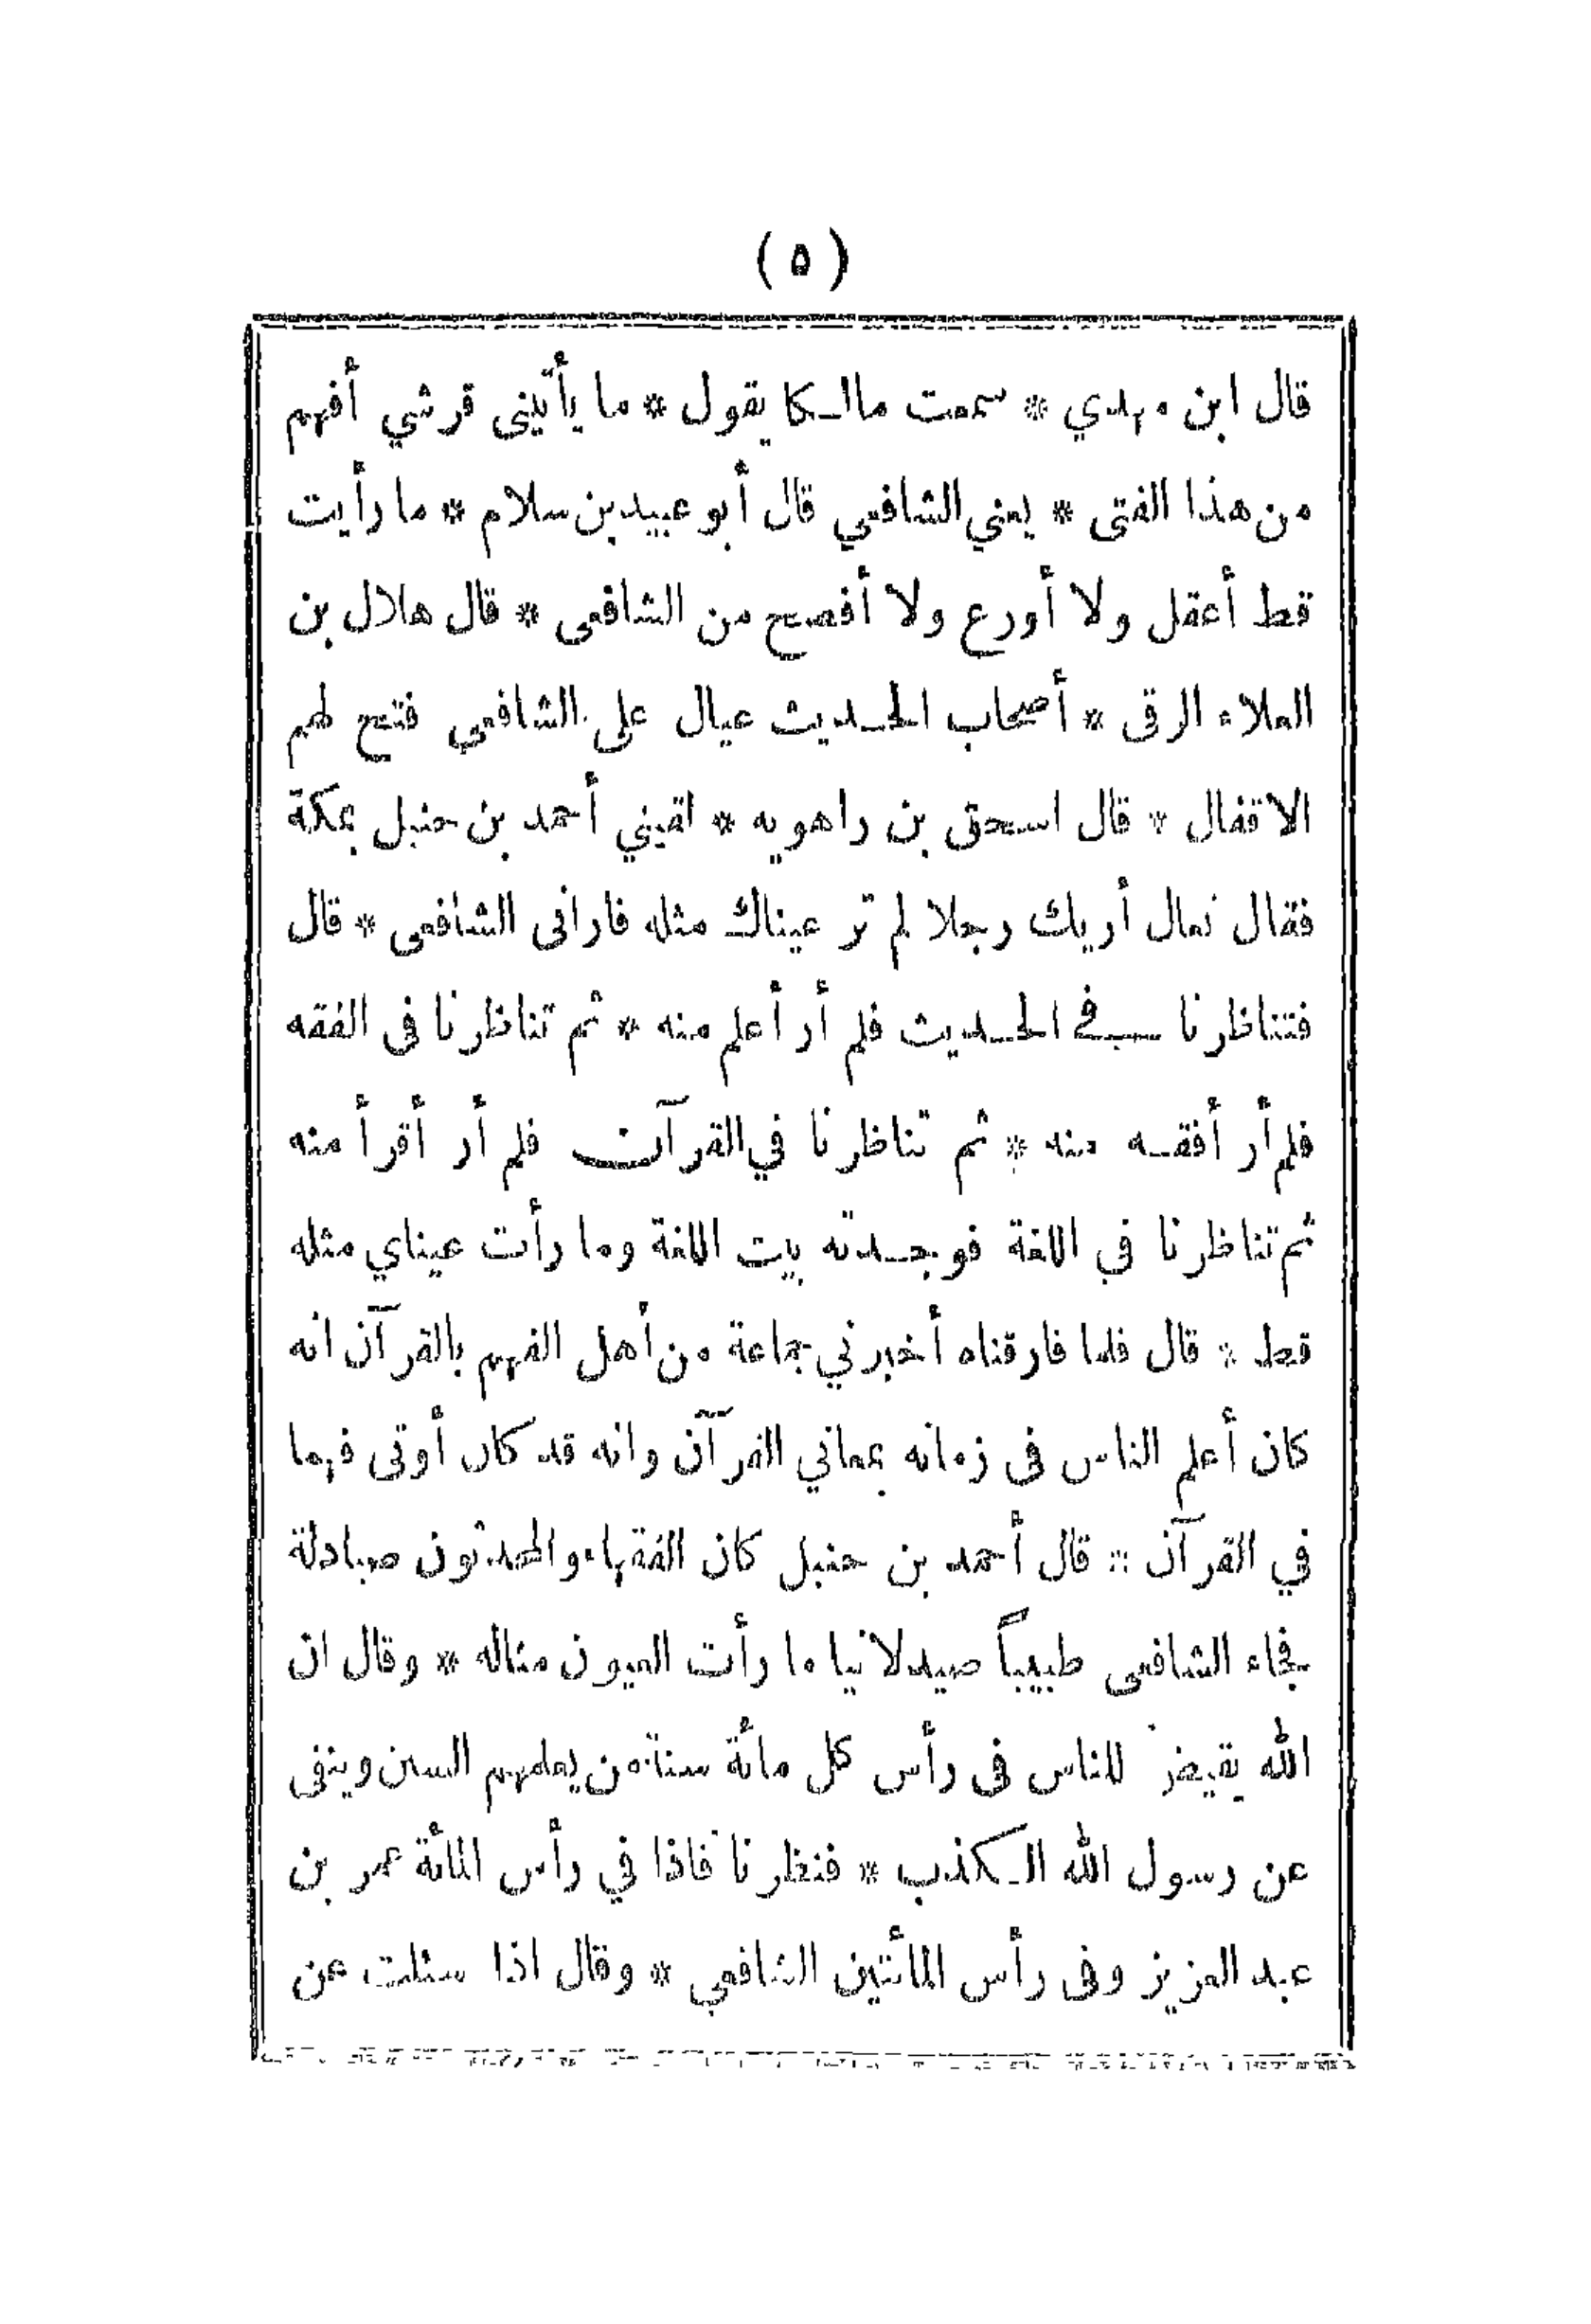 ( ٥ )
قال ابن مهدي * سمعت مالـكا يقول * ما يأتيني قرشي أفهم
من هذا الفتى * يعني الشافعي قال أبو عبيد بن سلام * ما رأيت
قط أعقل ولا أورع ولا أفصح من الشافعى * قال هلال بن
العلاء الرقى * أصحاب الحـديث عيال على الشافعي فتح لهم
الاقفال * قال اسحق بن راهويه * لقيني أحمد بن حنبل بمكة
فقال تعال أريك رجلا لم تر عيناك مثله فارانى الشافعى * قال
فتناظرنا في الحـديث فلم أر أعلم منه * ثم تناظرنا فى الفقه
فلم أر أفقـه منه * ثم تناظرنا في القرآن فلم أر أقرأ منه
ثم تناظرنا في اللغة فوجـدته بيت اللغة وما رأت عيناي مثله
قط * قال فلما فارقناه أخبرني جماعة من أهل الفهم بالقرآن انه
كان أعلم الناس فى زمانه بمعاني القرآن وانه قد كان أوتى فهما
في القرآن * قال أحمد بن حنبل كان الفقهاء والمحدثون صيادلة
فجاء الشافعى طبيباً صيدلانيا ما رأت العيون مثاله * وقال ان
الله يقيض للناس فى رأس كل مائة سنة من يعلمهم السنن وينفى
عن رسول الله الـكذب * فنظرنا فاذا في رأس المائة عمر بن
عبد العزيز وفى رأس المأتين الشافعي * وقال اذا سئلت عن